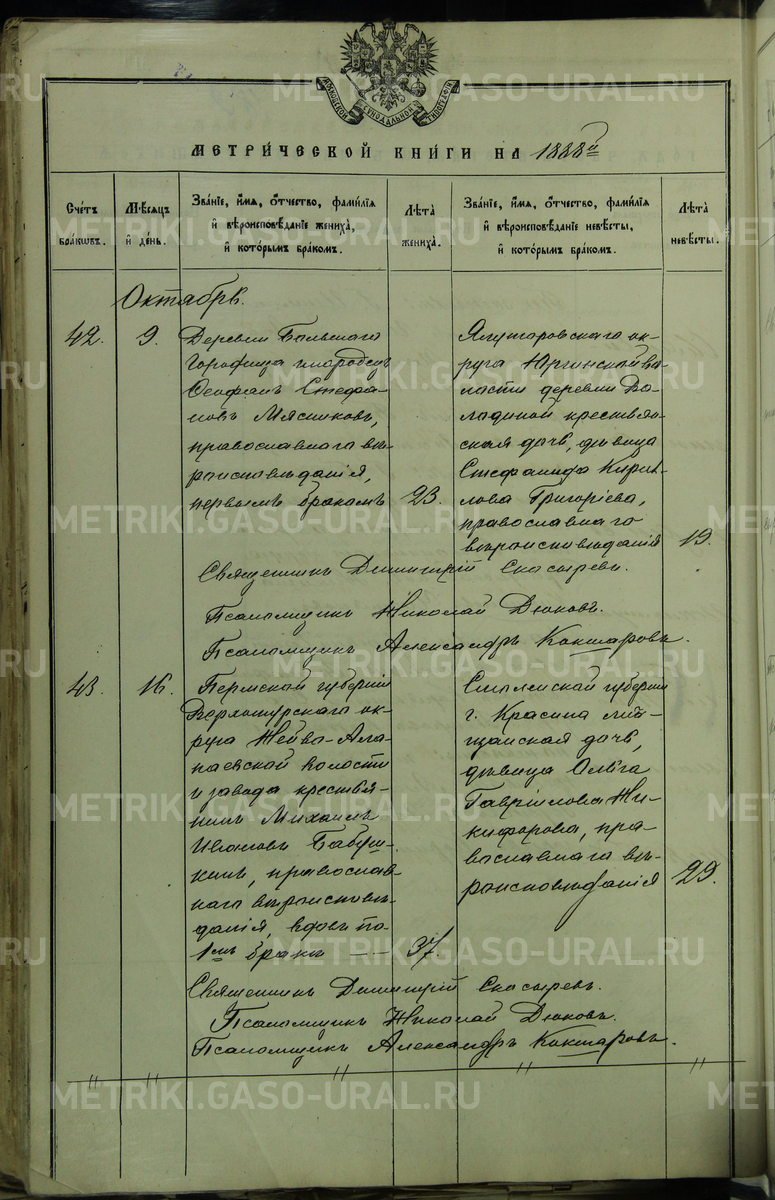 МОСКОВСКОЙ СѴНОДАЛЬНОЙ ТИПОГРАФІИ
МЕТРИ́ЧЕСКОЙ КНИ́ГИ НА 1888й
Сче́тъ бра́кѡвъ.
Мѣ́сяцъ и҆ де́нь.
Зва́нїе, и҆́мѧ, ѻ҆́тчество, фами́лїѧ
и҆ вѣроисповѣ́данїе жениха̀,
и҆ кото́рымъ бра́комъ.
Лѣ́та жениха̀.
Зва́нїе, и҆́мѧ, ѻ҆́тчество, фами́лїѧ
и҆ вѣроисповѣ́данїе невѣ́сты,
и҆ кото́рымъ бра́комъ.
Лѣ́та невѣ́сты.
Октябрь.
42.
9.
Деревни Большаго
Городища инородецъ
Феофанъ Стефа-
новъ Мясниковъ,
православнаго вѣ-
роисповѣданія,
первымъ бракомъ
23.
Ялуторовскаго ок-
руга Юргинской во-
лости деревни Во-
лодиной крестьян-
ская дочь, дѣвица
Стефанида Кирил-
лова Григоріева,
православнаго
вѣроисповѣданія
19.
Священникъ Димитрій Скосыревъ.
Псаломщикъ Николай Дюковъ.
Псаломщикъ Александръ Кокшаровъ.
43.
16.
Пермской губерніи
Верхотурскаго ок-
руга Нейво-Ала-
паевской волости
и завода крестья-
нинъ Михаилъ
Ивановъ Бабуш-
кинъ, православ-
наго вѣроисповѣ-
данія, вдовъ по
1мъ бракѣ
37.
Смоленской губерніи
г. Краснаго мѣ-
щанская дочь,
дѣвица Ольга
Гавріилова Ни-
кифорова, пра-
вославнаго вѣ-
роисповѣданія
29.
Священникъ Димитрій Скосыревъ.
Псаломщикъ Николай Дюковъ.
Псаломщикъ Александръ Кокшаровъ.
METRIKI.GASO-URAL.RU